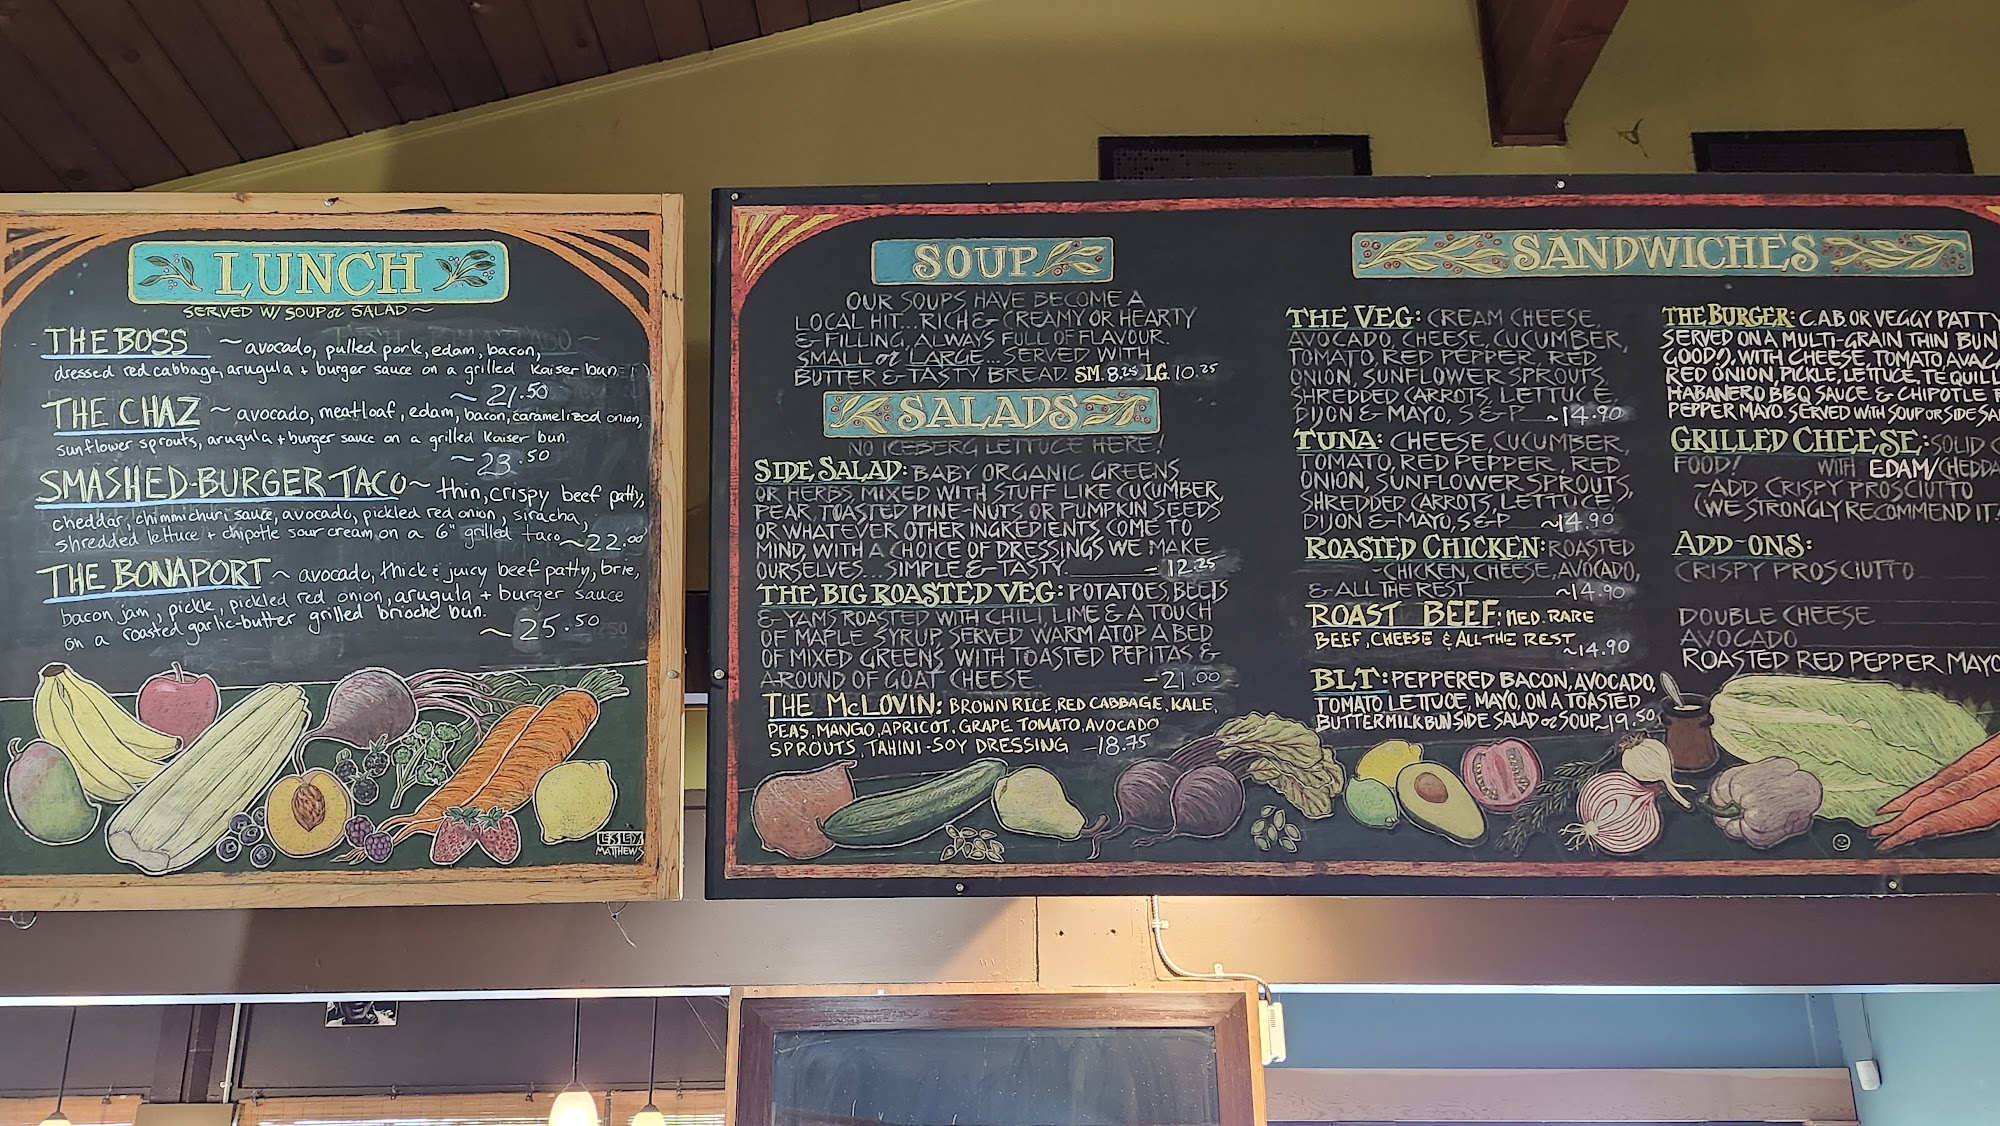 LUNCH
SERVED W/ SOUP or SALAD ~
THE BOSS ~ avocado, pulled pork, edam, bacon,
dressed red cabbage, arugula + burger sauce on a grilled Kaiser bun.
~ 21.50
THE CHAZ ~ avocado, meatloaf, edam, bacon, caramelized onion,
sunflower sprouts, arugula + burger sauce on a grilled Kaiser bun.
~ 23.50
SMASHED-BURGER TACO ~ thin, crispy beef patty,
cheddar, chimmichuri sauce, avocado, pickled red onion, siracha,
shredded lettuce + chipotle sour cream on a 6" grilled taco ~ 22.00
THE BONAPORT ~ avocado, thick & juicy beef patty, brie,
bacon jam, pickle, pickled red onion, arugula + burger sauce
on a roasted garlic-butter grilled brioche bun.
~ 25.50
LESLEY
MATTHEWS
SOUP
OUR SOUPS HAVE BECOME A
LOCAL HIT... RICH & CREAMY OR HEARTY
& FILLING, ALWAYS FULL OF FLAVOUR.
SMALL or LARGE... SERVED WITH
BUTTER & TASTY BREAD. SM. 8.25 LG. 10.25
SALADS
NO ICEBERG LETTUCE HERE!
SIDE SALAD: BABY ORGANIC GREENS
OR HERBS, MIXED WITH STUFF LIKE CUCUMBER,
PEAR, TOASTED PINE-NUTS OR PUMPKIN SEEDS
OR WHATEVER OTHER INGREDIENTS COME TO
MIND, WITH A CHOICE OF DRESSINGS WE MAKE
OURSELVES... SIMPLE & TASTY. - 12.25
THE BIG ROASTED VEG: POTATOES, BEETS
& YAMS ROASTED WITH CHILI, LIME & A TOUCH
OF MAPLE SYRUP, SERVED WARM ATOP A BED
OF MIXED GREENS WITH TOASTED PEPITAS &
A ROUND OF GOAT CHEESE. - 21.00
THE McLOVIN: BROWN RICE, RED CABBAGE, KALE,
PEAS, MANGO, APRICOT, GRAPE TOMATO, AVOCADO
SPROUTS, TAHINI-SOY DRESSING - 18.75
SANDWICHES
THE VEG: CREAM CHEESE,
AVOCADO, CHEESE, CUCUMBER,
TOMATO, RED PEPPER, RED
ONION, SUNFLOWER SPROUTS
SHREDDED CARROTS, LETTUCE,
DIJON & MAYO, S & P ~ 14.90
TUNA: CHEESE, CUCUMBER,
TOMATO, RED PEPPER, RED
ONION, SUNFLOWER SPROUTS,
SHREDDED CARROTS, LETTUCE,
DIJON & MAYO, S & P ~ 14.90
ROASTED CHICKEN: ROASTED
CHICKEN, CHEESE, AVOCADO,
& ALL THE REST ~ 14.90
ROAST BEEF: MED. RARE
BEEF, CHEESE & ALL THE REST ~ 14.90
BLT: PEPPERED BACON, AVOCADO,
TOMATO LETTUCE, MAYO, ON A TOASTED
BUTTERMILK BUN SIDE SALAD or SOUP ~ 19.50
THE BURGER: C.A.B. OR VEGGY PATTY
SERVED ON A MULTI-GRAIN THIN BUN
GOOD!), WITH CHEESE, TOMATO
RED ONION, PICKLE, LETTUCE,
HABANERO BBQ SAUCE & CHIPOTLE
PEPPER MAYO. SERVED WITH SOUP OR SIDE
GRILLED CHEESE: SOLID
FOOD! WITH EDAM/CHEDDA
~ADD CRISPY PROSCIUTTO
(WE STRONGLY RECOMMEND IT!
ADD-ONS:
CRISPY PROSCIUTTO
DOUBLE CHEESE
AVOCADO
ROASTED RED PEPPER MAYO